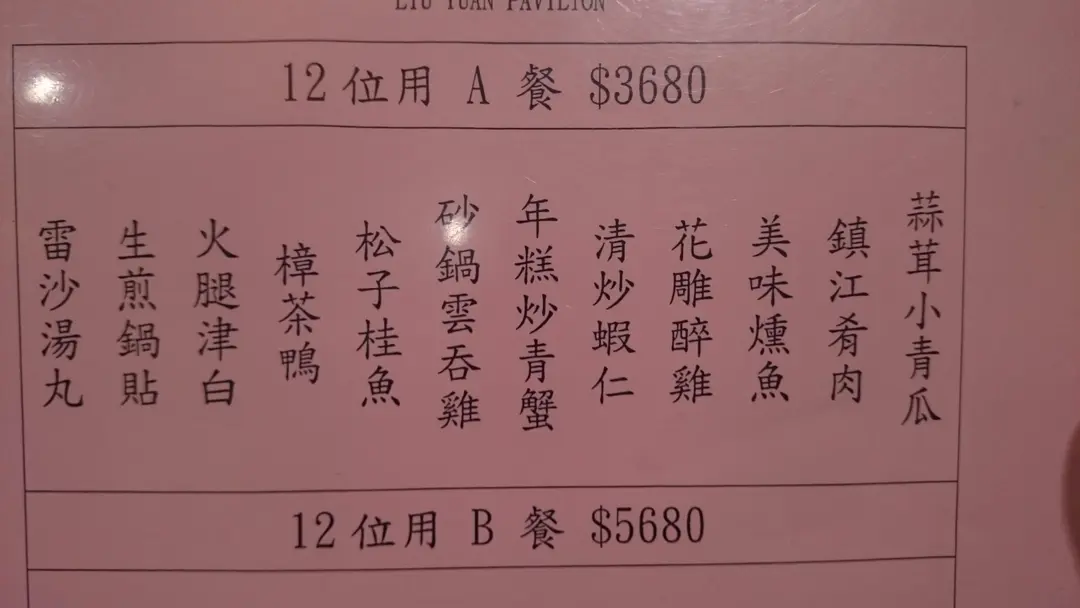 LIU YUAN PAVILION
12位用 A 餐 $3680
蒜茸小青瓜
鎮江肴肉
美味燻魚
花雕醉雞
清炒蝦仁
年糕炒青蟹
砂鍋雲吞雞
松子桂魚
樟茶鴨
火腿津白
生煎鍋貼
雷沙湯丸
12位用 B 餐 $5680